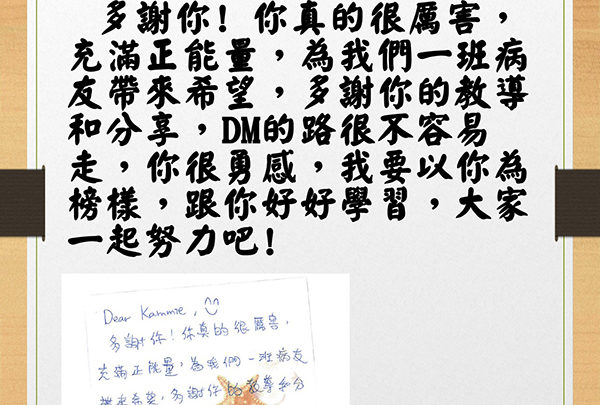 多謝你！你真的很厲害，
充滿正能量，為我們一班病
友帶來希望，多謝你的教導
和分享，DM的路很不容易
走，你很勇感，我要以你為
榜樣，跟你好好學習，大家
一起努力吧！
Dear Kammie,
多謝你！你真的很厲害，
充滿正能量，為我們一班病友
帶來希望，多謝你的教導和分